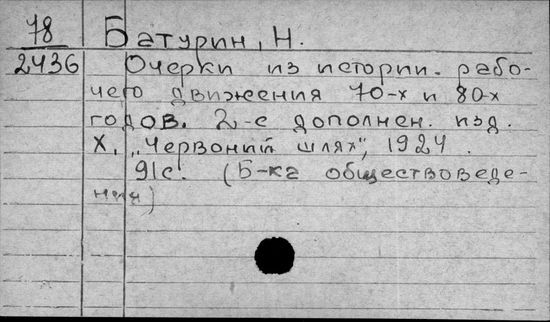 78 Батурин, Н.
2436 Очерки из истории рабо-
чего движения 70-х и 80-х
годов. 2-е дополнен. изд.
Х., "Червоний шлях", 1924.
91с. (Б-ка обществоведе-
ния)